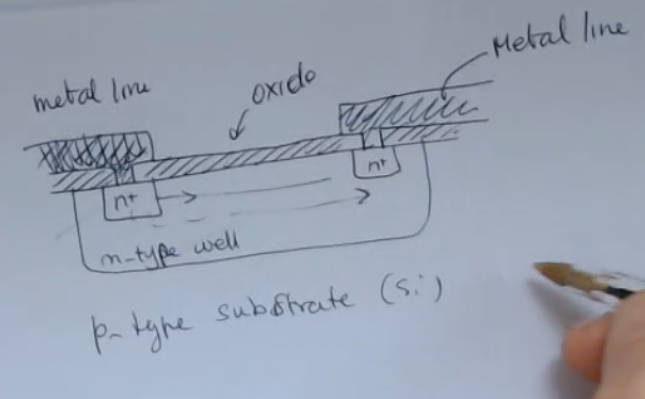 Metal line
metal line
oxido
n+
n+
n-type well
p-type substrate (Si)